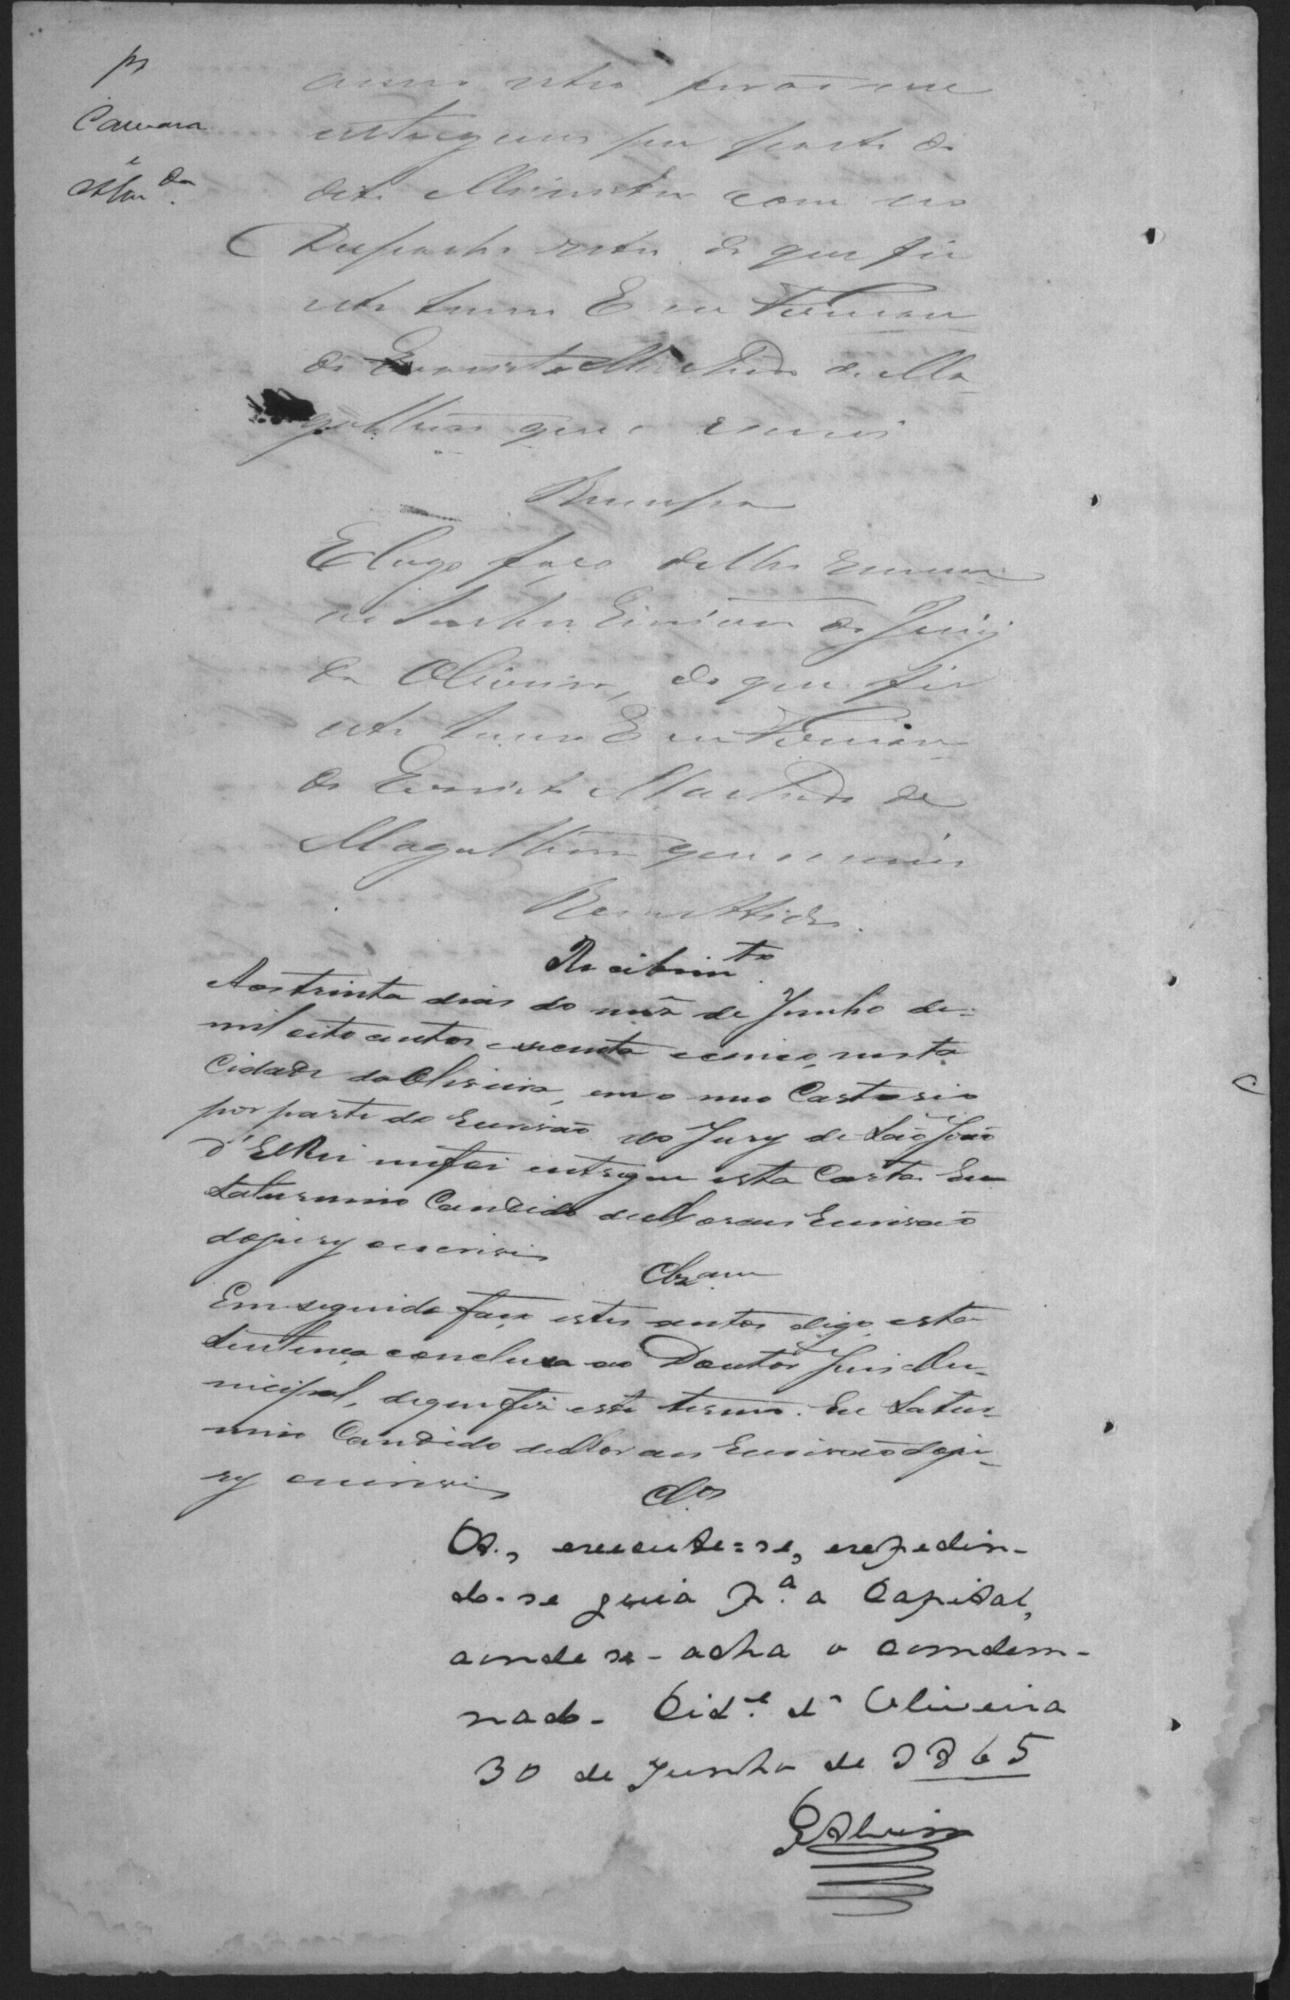 pª
Camara
e
autos retro para me
entregues por parte do
dito Ministro com seo
Despacho retro do que fiz
este termo E eu Fernan
do Evaristo Machado de Ma
galhães que o escrevi
Remessa
E logo faço delles remessa
ao Escrivão do Jury
da Oliveira, do que fiz
este termo E eu Fernan
do Evaristo Machado de
Magalhães que o escrevi
Remettidos
Recebim.to
Aos trinta dias do mêz de Junho de
mil oito centos e secenta e cinco, nesta
Cidade da Oliveira, em o meo Cartorio
por parte do Escrivão do Jury de São João
d'ElRei me foi entregue esta Carta. Eu
Saturnino Candido de Moraes Escrivão
do jury o escrevi
Clzam
Em seguida faço estes autos digo, esta
Sentença concluza ao Doutor Juis Mu-
nicipal, de que fiz este termo. Eu Satur-
nino Candido de Moraes Escrivão do ju-
ry o escrevi
Clos
A., execute-se, expedin-
do-se guia p.ª a Capital,
aonde se-acha o condem-
nado. Cid.e d'Oliveira
30 de Junho de 1865